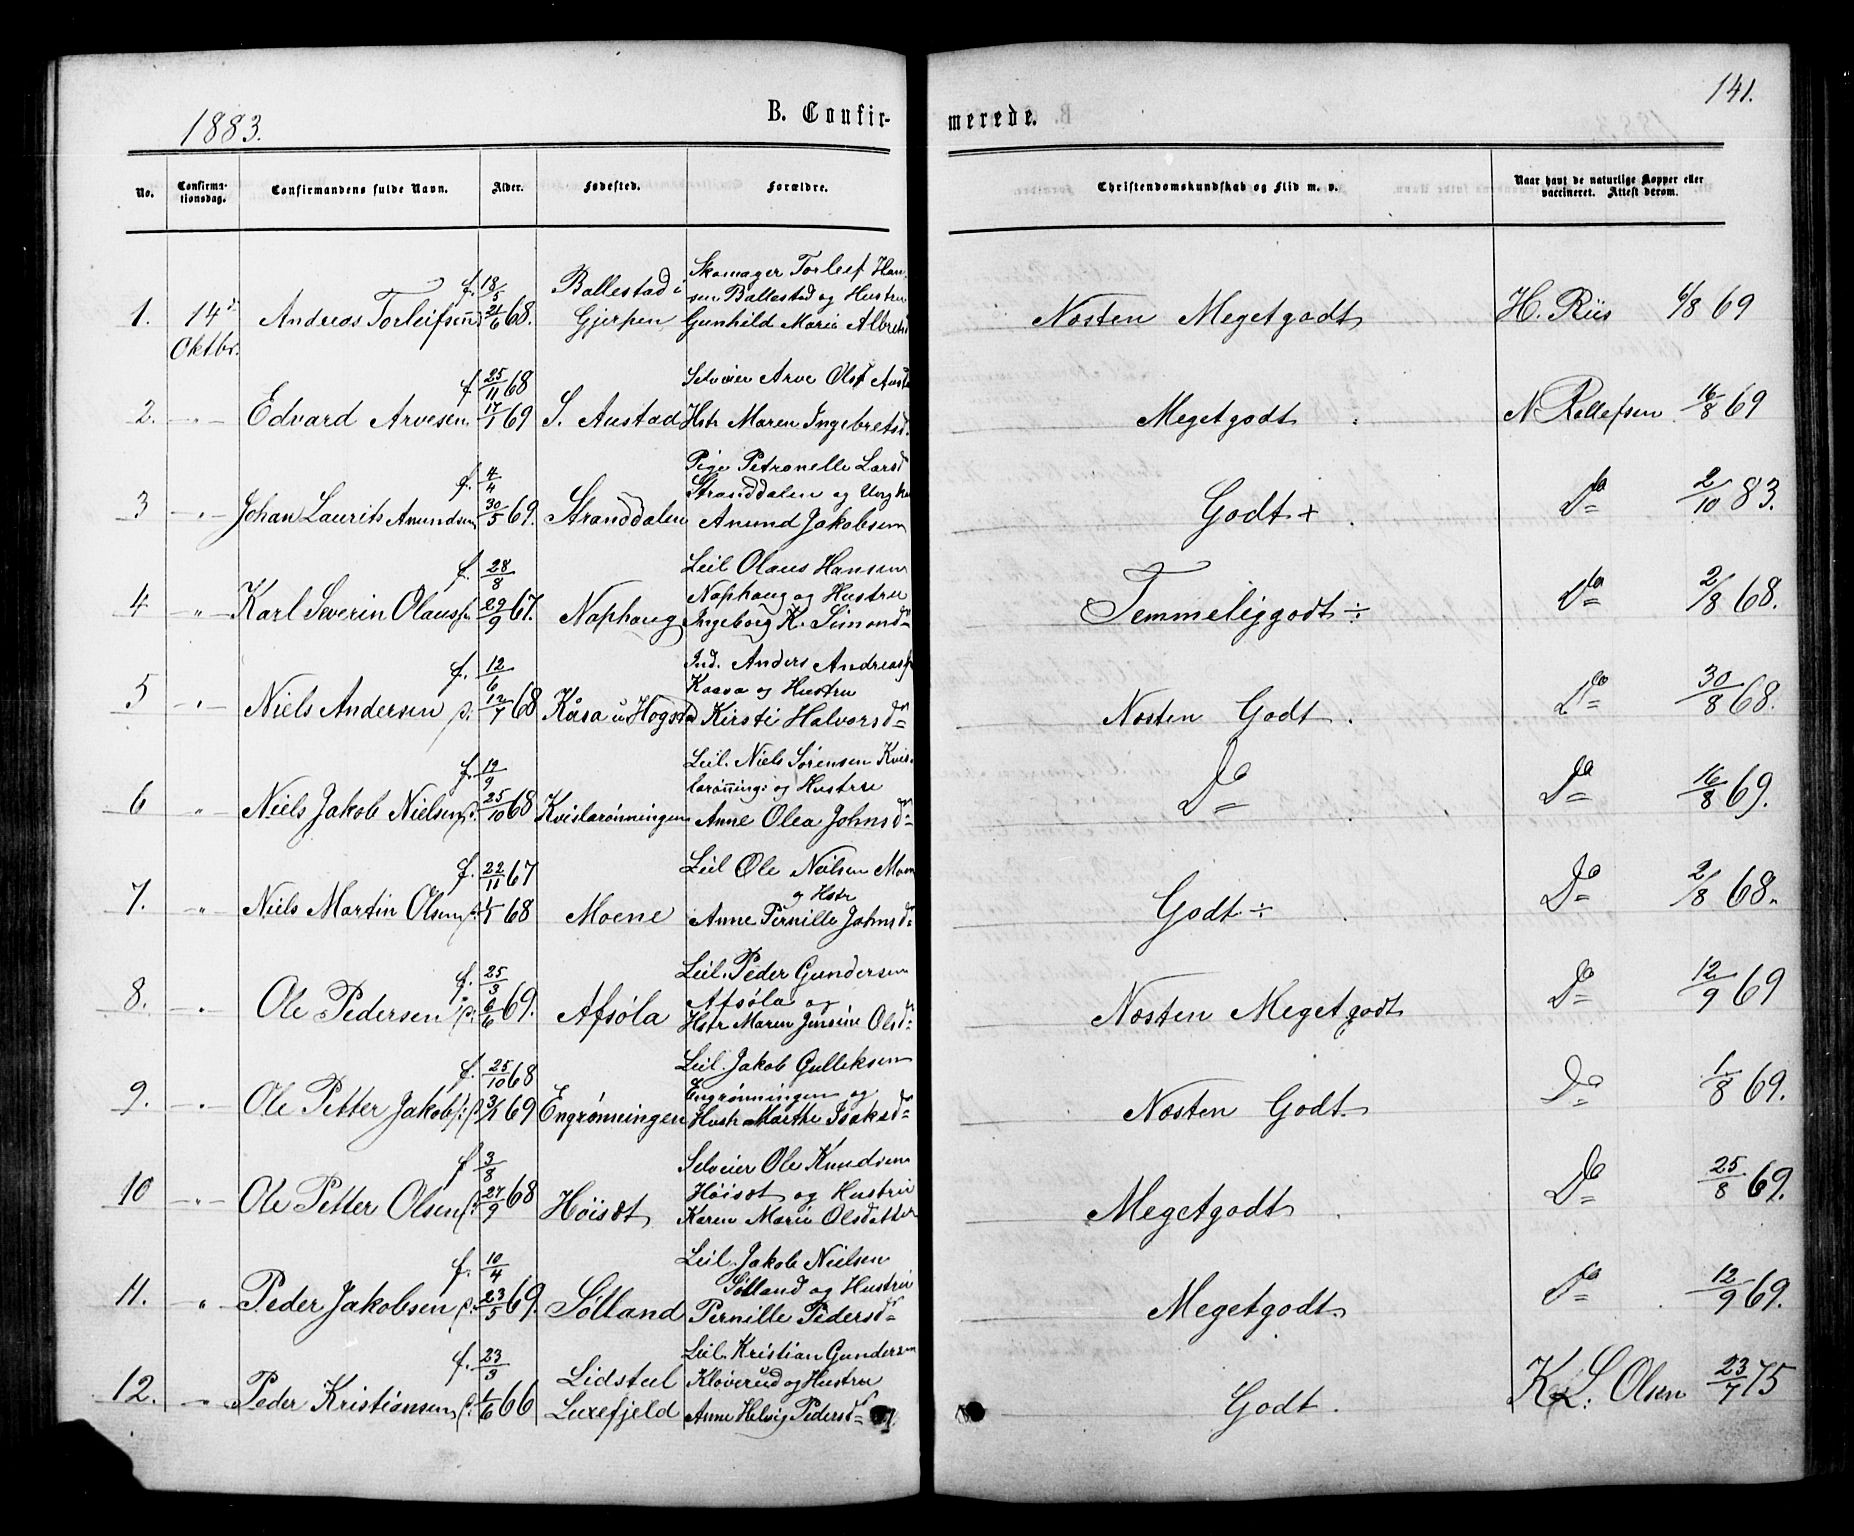 141.
1883.
B. Confir- merede.
No. Confirma-tionsdag. Confirmandens fulde Navn. Alder. Fødested. Forældre. Christendomskundskab og Flid m. v. Naar havt de naturlige Kopper eller vaccineret. Attest derom.
Skomager Torleif Han-
f. 18/5 Ballestad i sen Ballestad og Hustru
1. 14d Andreas Torleifsen 21/6 68. Gjerpen Gunhild Maria Albretsd Næsten Megetgodt H. Riis 6/8 69
Oktbr.
f 25/11 68 Selveier Arve Ols Austa
2. -"- Edvard Arvesen 17/1 69 S. Austad Hstr Maren Ingebretsd. Megetgodt N Rollefsen 16/8 69
Pige Petronelle Larsd
f. 4/4 Stranddalen og Ungk
3 -"- Johan Laurits Amundsen 30/5 69. Stranddalen Amund Jakobsen Godt + Do 2/10 83.
f. 28/8 Leil Olaus Hansen
Naphaug og Hustru
4 " Karl Severin Olauss 29/9 67. Naphaug Ingeborg K. Simonsd Temmeliggodt ÷ Do 2/8 68.
f. 12/6 Ind. Anders Andreass
Kaasa og Hustru
5 -"- Niels Andersen d. 12/7 68 Kåsa u Hogst Kirsti Halvorsd Næsten Godt. Do 30/8 68.
f. 19/9 Leil. Niels Sørensen Kvis-
larønning: og Hustru
6 " Niels Jakob Nielsen d. 25/10 68 Kvislarønningen Anne Olea Johnsd Do Do 16/8 69.
f. 22/11 67 Leil Ole Nielsen Moen
og Hstr
7. -"- Niels Martin Olsen 1/1 68 Moene Anne Pernille Johnsd Godt ÷ Do 2/8 68.
f. 25/3 Leil. Peder Gundersen
Afsøla og
8. " Ole Pedersen d. 6/6 69. Afsøla Hstr Maren Jensine Olsd Næsten Megetgodt Do 12/9 69
f. 25/10 68 Leil. Jakob Gulleksen
Engrønningen og
9. -"- Ole Petter Jakobs: d. 3/1 69 Engrønningen Hustr Marthe Isaksd Næsten Godt Do 1/8 69.
f 3/8 Selveier Ole Knudsen
Høisæt og Hustru
10 -"- Ole Petter Olsen d. 27/9 68 Høisæt Karen Marie Olsdatter Megetgodt Do 25/8 69.
f. 10/4 Leil. Jakob Nielsen
Sølland og Hustru
11. " Peder Jakobsen d. 23/5 69. Sølland Pernille Pedersd Megetgodt Do 12/9 69.
f. 23/3 Leil. Kristian Gundersen
Lidsteul Kløverud og Hustru
12. " Peder Kristiansen d. 1/6 66 Luxefjeld Anne Helvig Pedersd Godt. K L. Olsen 23/7 75